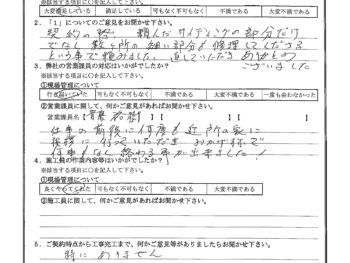 ※該当する項目に○を記入して下さい。
大変満足している 満足している 可も無く不可も無く 不満である 大変不満である
2. 「1」についてのご意見をお聞かせ下さい。
契約の際 頼んだサイディングの部分だけ
でなく数ヶ所の細い部分も修理してくださる
という事で頼みました。直していただき ありがとう
ございました
3. 弊社の営業課員の対応はいかがでしたか?
※該当する項目に○を記入して下さい。
①現場管理について
行き届いていた 可も無く不可も無く 不満である 大変不満である 一度も会わなかった
②営業課員に関して、何かご意見があればお聞かせ下さい。
営業課員名【 齋藤 祐樹 】【 】【 】
仕事の前後に何度も近所の家に
挨拶に行っていただき おかげ様で
何事もなく終わる事が出来ました!
4. 施工員の作業内容等はいかがでしたか?
※該当する項目に○を記入して下さい。
①現場管理について
良くやってくれた 可も無く不可も無く 不満である 大変不満である
②施工員に関して、何かご意見があればお聞かせ下さい。
5. ご契約時点から工事完工まで、何かご意見等がありましたらお聞かせ下さい。
特に ありません